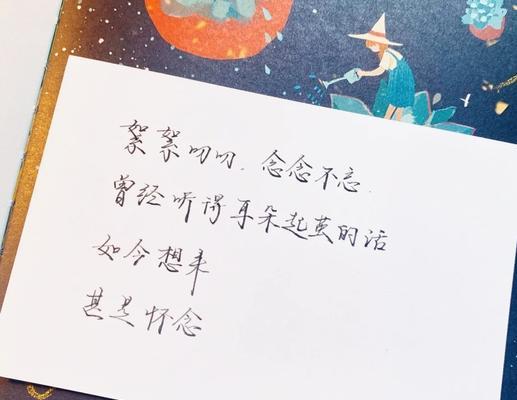 絮絮叨叨，念念不忘.
曾经听得耳朵起茧的话
如今想来
甚是怀念